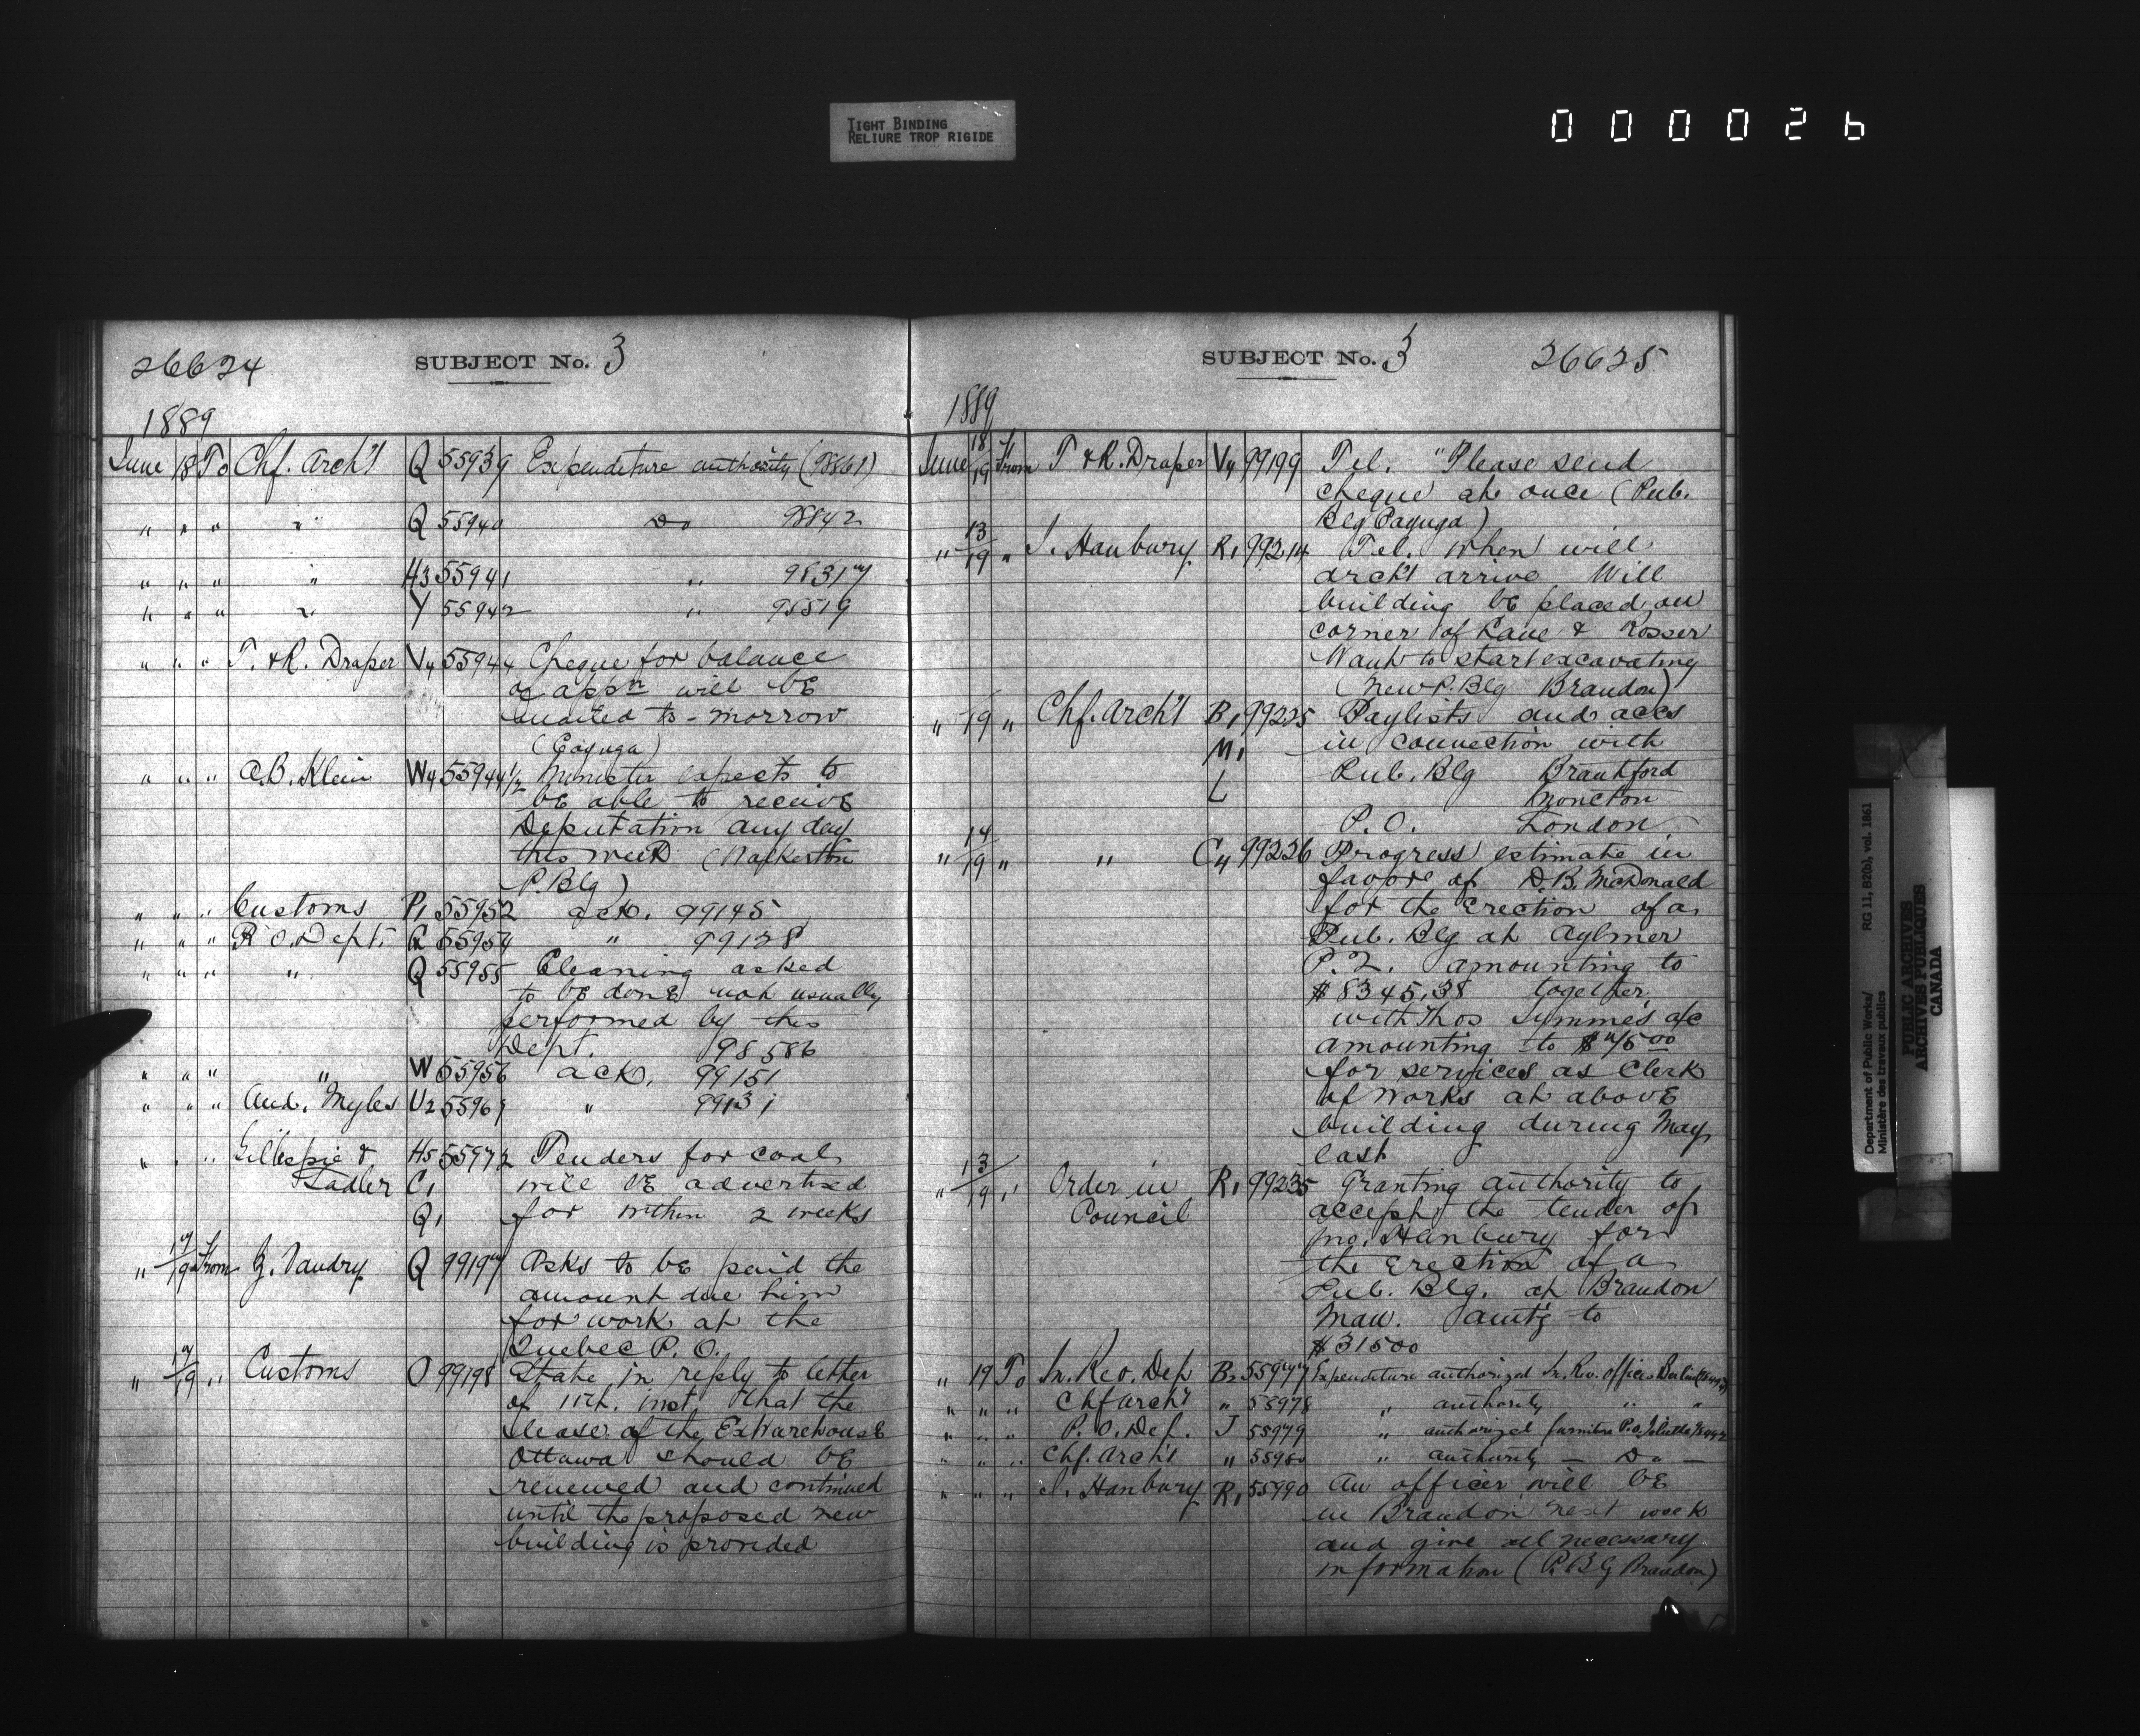 TIGHT BINDING
RELIURE TROP RIGIDE
000026
26624 SUBJECT No. 3
1889
June 18 To Chf. Arch't Q 55939 Expenditure authority (98861)
" " " " Q 55940 Do 98842
" " " " H3 55941 " 98317
" " " " Y 55942 " 98519
" " " T. & R. Draper V4 55944 Cheque for balance
of appn will be
to-morrow
(Cayuga)
" " " A.B. Klein W4 55944 1/2 Minister expects to
be able to receive
Deputation any day
this week (Walkerton
P. Blg)
" " " Customs P1 55952 ack. 99145
" " " P.O. Dept. Q 55954 " 99138
" " " " Q 55955 Cleaning asked
to be done not usually
performed by this
Dept. 98586
" " " " W 55956 ack. 99151
" " " And. Myles U2 55969 " 99131
" " " Gillespie & H5 55972 Tenders for coal
Sadler C1 will be advertised
Q1 for within 2 weeks
" 17/19 From Z. Vandry Q 99197 Asks to be paid the
amount due him
for work at the
Quebec P.O.
" 17/19 " Customs O 99198 State in reply to letter
of 11th. inst. that the
lease of the Ex Warehouse
Ottawa should be
renewed and continued
until the proposed new
building is provided
SUBJECT No. 3 26625
1889
June 18/19 From T & R. Draper V4 99199 Tel. "Please send
cheque at once (Pub.
Blg Cayuga)
" 13/19 " J. Hanbury R1 99214 Tel. When will
arch't arrive Will
building be placed on
corner of Lane & Rosser
Want to start excavating
(New P. Blg Brandon)
" /19 " Chf. Arch't B1 99225 Paylists and accs
M1 in connection with
L Pub. Blg Brantford
Moncton
P.O. London
" 14/19 " " C4 99226 Progress estimate in
favor of D.B. McDonald
for the erection of a
Pub. Blg at Aylmer
P.Q. amounting to
$8345.38 together
with Thos Symmes a/c
amounting to $75 00
for services as Clerk
of Works at above
building during May
last
" 13/19 " Order in R1 99235 Granting authority to
Council accept the tender of
Jno. Hanbury for
the erection of a
Pub. Blg. at Brandon
Man. amt'g to
$31500
" 19 To In. Rev. Dep B2 55977 Expenditure authorized In. Rev. office Berlin
" " " Chf Arch't " 55978 " authority " "
" " " P.O. Dep. J 55979 " authorized furniture P.O. Joliette
" " " Chf. Arch't " 55980 " authority — Do —
" " " J. Hanbury R1 55990 An officer will be
in Brandon next week
and give all necessary
information (P. Blg Brandon)
Department of Public Works/ RG 11, B2(b), vol. 1861
Ministère des travaux publics
PUBLIC ARCHIVES
ARCHIVES PUBLIQUES
CANADA